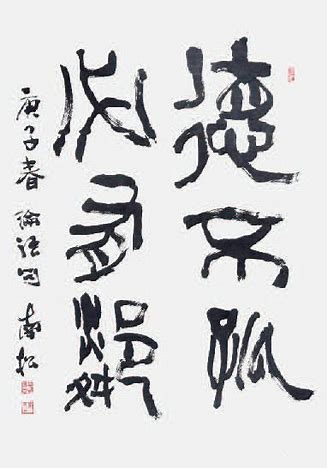 德不孤
必有鄰
庚子春 論語句 南松